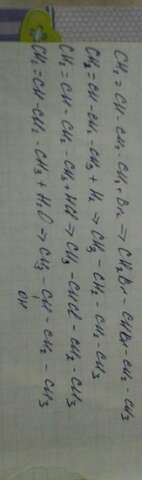 CH2=CH-CH2-CH3+Br2 → CH2Br-CHBr-CH2-CH3
CH2=CH-CH2-CH3+H2 → CH3-CH2-CH2-CH3
CH2=CH-CH2-CH3+HCl → CH3-CHCl-CH2-CH3
CH2=CH-CH2-CH3+H2O → CH3-CH-CH2-CH3
OH